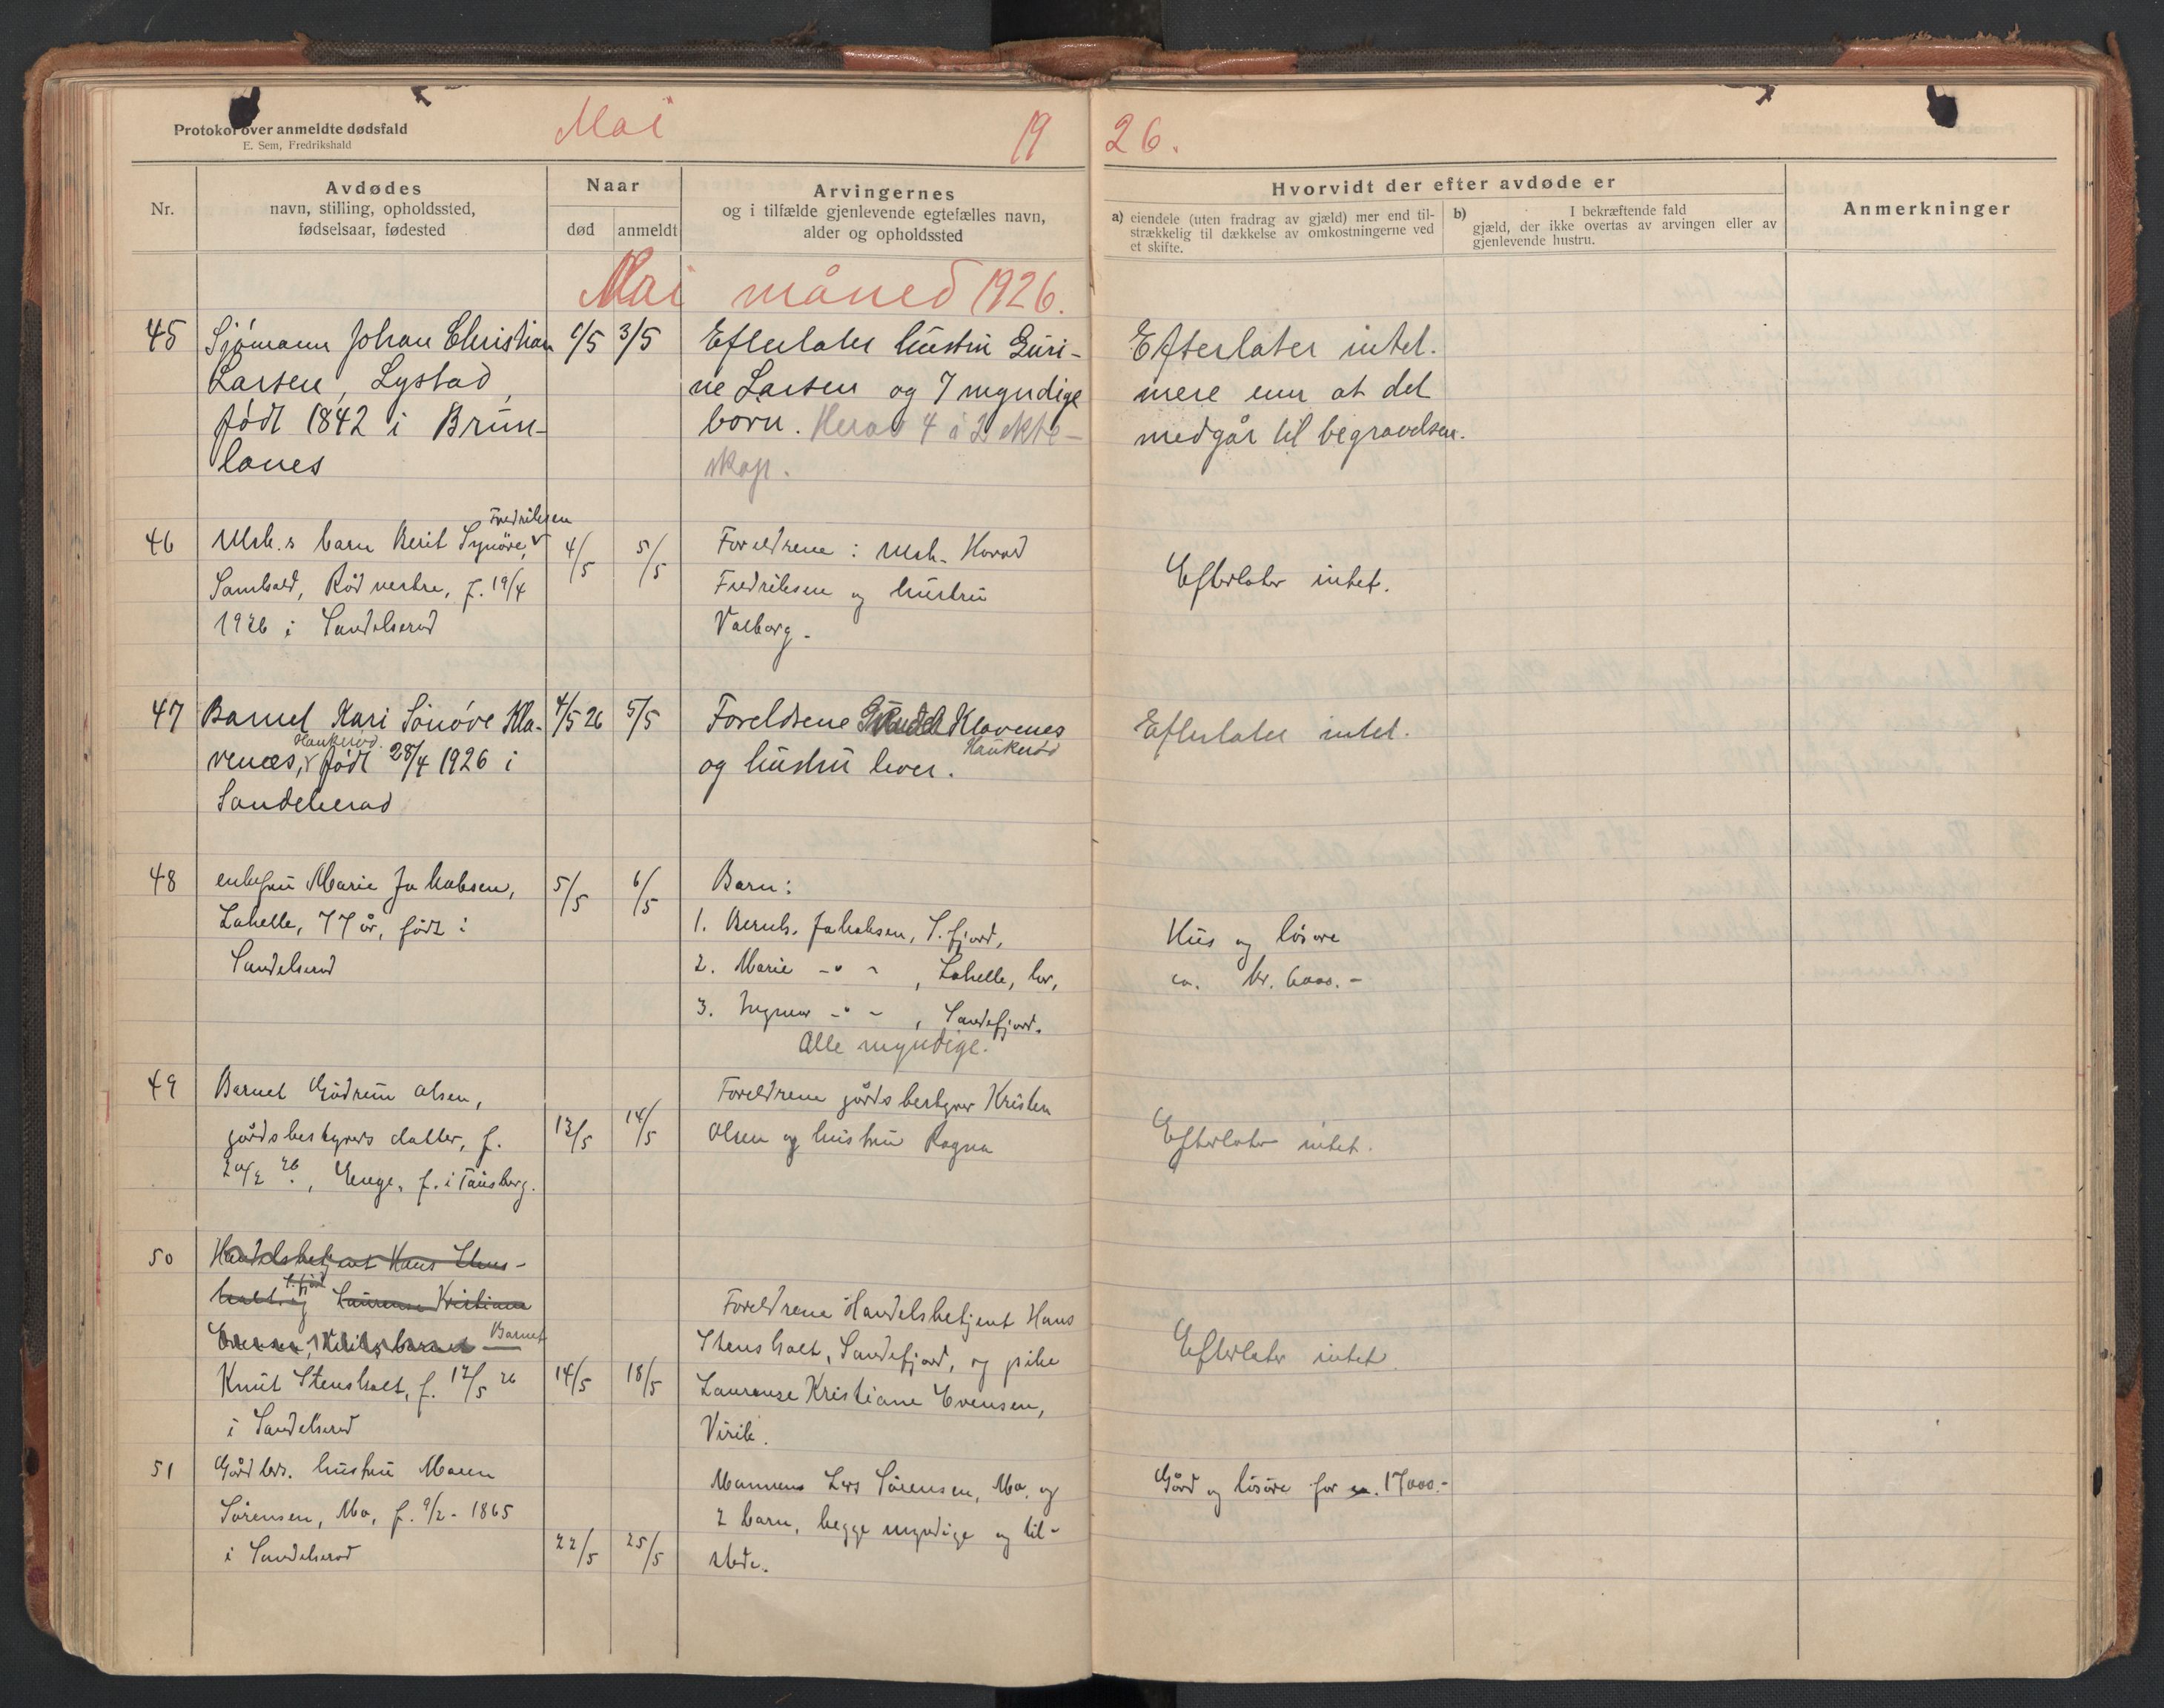 Protokol over anmeldte dødsfald
E. Sem, Fredrikshald
Mai 19 26.
Nr.
Avdødes
navn, stilling, opholdssted,
fødselsaar, fødested
Naar
død anmeldt
Arvingernes
og i tilfælde gjenlevende egtefælles navn,
alder og opholdssted
Hvorvidt der efter avdøde er
a) eiendele (uten fradrag av gjæld) mer end til-
strækkelig til dækkelse av omkostningerne ved
et skifte.
b) I bekræftende fald
gjæld, der ikke overtas av arvingen eller av
gjenlevende hustru.
Anmerkninger
Mai måned 1926.
45 Sjømann Johan Christian
Larsen, Lystad,
født 1842 i Brun-
lanes
1/5 3/5
Efterlater hustru Guri-
ne Larsen og 7 myndige
born. Herav 4 i 2 ekte-
skap.
Efterlater intet.
mere enn at det
medgår til begravelsen.
46
Fredriksen
barn Berit Synöve,
Rød vestre, f. 19/4
1926 i Sandeherad
4/5 5/5
Foreldrene: Havard
Fredriksen og hustru
Valborg.
Efterlater intet.
47 Barnet Kari Sønøve Kla-
Haukerød
venæs, født 28/4 1926 i
Sandeherad
4/5 26 5/5
Foreldrene Klavenes
Haukerød
og hustru lever.
Efterlater intet.
48 enkefru Marie Jakobsen,
Lahelle, 77 år, født i
Sandeherad
5/5 6/5
Barn:
1. Bernh. Jakobsen, S.fjord,
2. Marie -"- , Lahelle, her,
3. -"- , Sandefjord.
Alle myndige.
Hus og løsøre
ca. kr. 6000.-
49 Barnet Gudrun Olsen,
gårdsbestyrers datter, f.
20/2 26., Enge, f. i Tønsberg.
13/5 14/5
Foreldrene gårdsbestyrer Kristen
Olsen og hustru Ragna
Efterlater intet.
50 Handelsbetjent Hans Stens-
S.fjord
holt og Laurense Kristiane
Evensen, Virik, barnet Barnet
Knut Stensholt, f. 12/5 26
i Sandeherad
14/5 18/5
Foreldrene Handelsbetjent Hans
Stensholt, Sandefjord, og pike
Laurense Kristiane Evensen,
Virik.
Efterlater intet.
51 Gårdbr. hustru Maren
Sørensen, Mo, f. 9/2 - 1865
i Sandeherad
22/5 25/5
Mannen Lars Sørensen, Mo, og
2 barn, begge myndige og til-
stede.
Gård og løsøre for ca. 17000.-